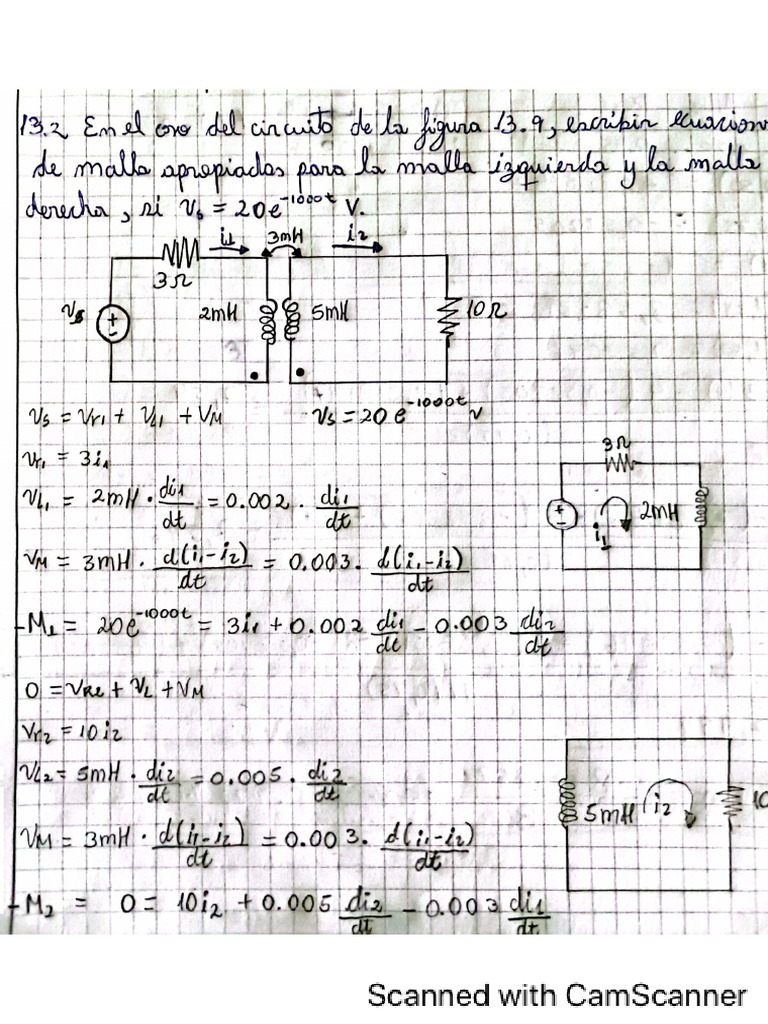 13.2 En el caso del circuito de la figura 13.9, escribir ecuacion
de malla apropiadas para la malla izquierda y la malla
derecha, si Vs = 20e^-1000t V.
i1 3mH i2
3Ω
Vs + - 2mH 5mH 10Ω
Vs = Vr1 + VL1 + VM Vs = 20 e^-1000t v
Vr1 = 3i1
3Ω
VL1 = 2mH · di1/dt = 0.002 · di1/dt
+ - i1 2mH
VM = 3mH · d(i1-i2)/dt = 0.003 · d(i1-i2)/dt
-M1 = 20e^-1000t = 3i1 + 0.002 di1/dt - 0.003 di2/dt
0 = VR2 + VL + VM
Vr2 = 10i2
VL2 = 5mH · di2/dt = 0.005 · di2/dt
5mH i2 10
VM = 3mH · d(i1-i2)/dt = 0.003 · d(i1-i2)/dt
-M2 = 0 = 10i2 + 0.005 di2/dt - 0.003 di1/dt
Scanned with CamScanner